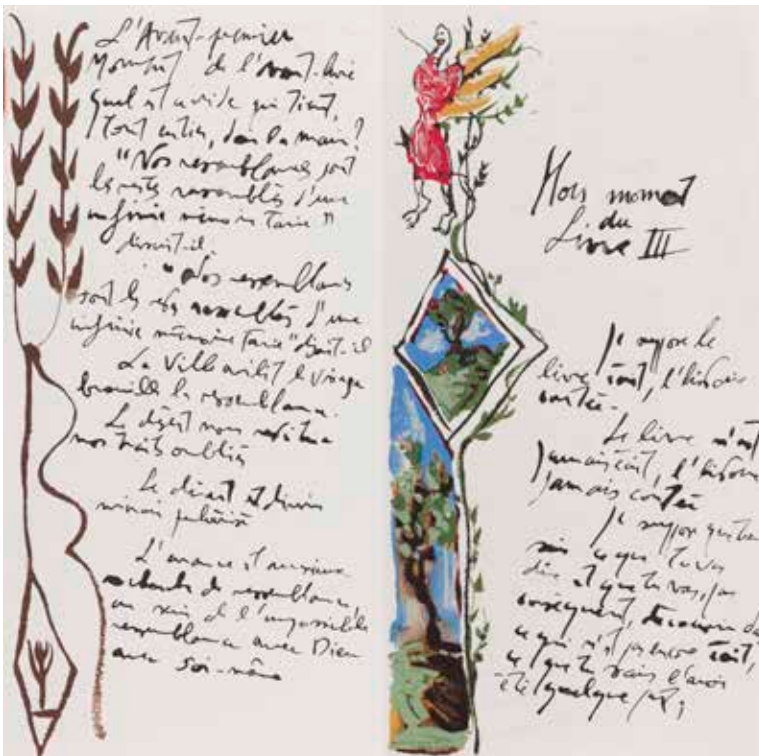 L'Avant-premier
Moment de l'avant-livre
Quel est ce vide qui tient,
tout entier, dans la main ?
"Nos ressemblances sont
les restes rassemblés d'une
infinie mémoire tarie"
disait-il.
"Nos ressemblances
sont les rassemblés d'une
infinie mémoire tarie" disait-il
La Ville avilit le Visage
brouille la ressemblance.
Le désert nous restitue
nos traits oubliés
Le désert est divin
miroir pulvérisé
L'errance est anxieuse
recherche de ressemblance
au sein de l'impossible
ressemblance avec Dieu
avec soi-même
Hors moment
du
Livre III
Je suppose le
livre écrit, l'histoire
contée.
Le livre n'est
jamais écrit, l'histoire
jamais contée
Je suppose que tu
sais ce que tu vas
dire et que tu vas, par
conséquent, découvrir du
ce qui n'est pas encore écrit,
ce que tu sais l'avoir
été quelque part,